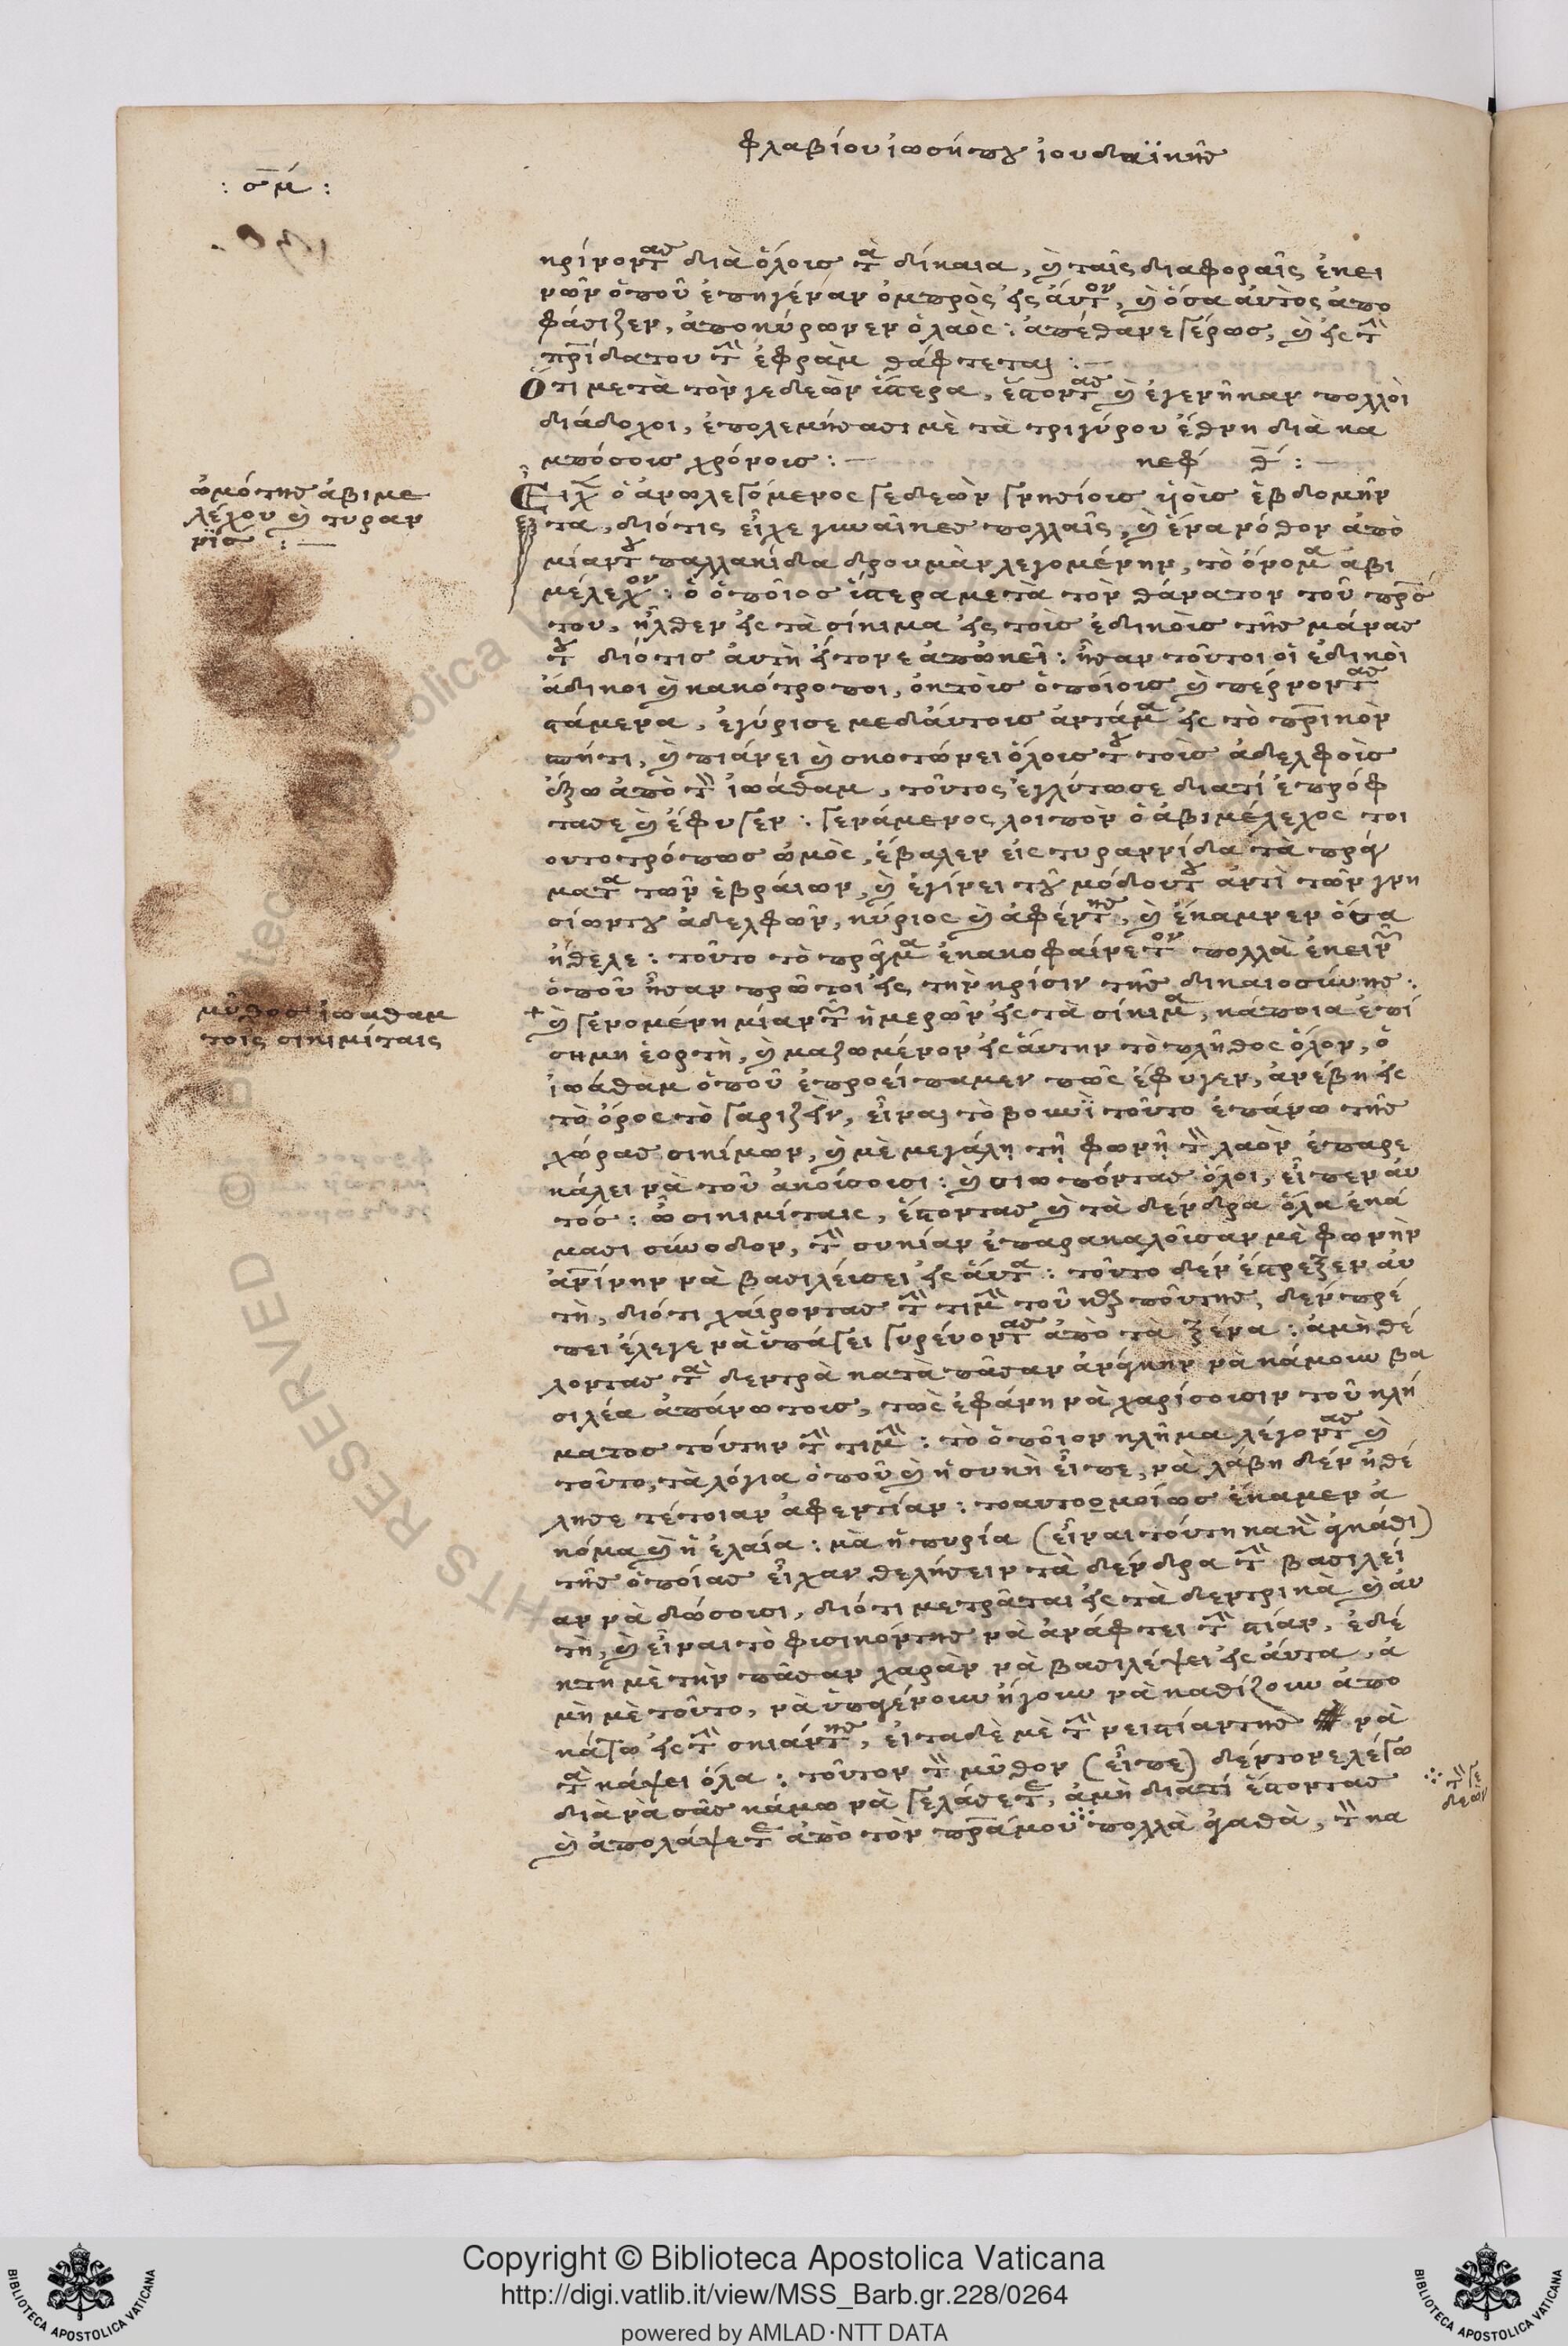 φλαβίου ἰωσήπου ἰουδαϊκῆς
: σμ :
κρίνοντας διὰ ὅλοις τὰ δίκαια, καὶ ταῖς διαφοραῖς ἐκει
νῶν ὁποῦ ἐπηγέναν ὀμπρὸς εἰς αὐτὸν, καὶ ὅσα αὐτὸς ἀπο
φάσιζεν, ἀποκύρωνεν ὁ λαὸς : ἀπέθανε γέρως, καὶ εἰς τὴν
πατρίδα του τὴν ἐφρὰμ θάφτεται : —
Ὅτι μετὰ τὸν γεδεὼν ὕστερα, ἔστοντας καὶ ἐγενῆκαν πολλοὶ
διάδοχοι, ἐπολεμήσασι μὲ τὰ τριγύρου ἔθνη διὰ κα
μπόσοις χρόνοις : — κεφ θ : —
Εἶχεν ὁ ἀνωλεγόμενος γεδεὼν γνησίοις υἱοῖς ἑβδομῆν
τα, διότις εἶχε γυναῖκες πολλαῖς, καὶ ἕνα νόθον ἀπὸ
μίαν του παλλακίδα δρουμὰν λεγομένην, τὸ ὄνομα ἀβι
μέλεχον : ὁ ὁποῖος ὕστερα μετὰ τὸν θάνατον τοῦ πατρός
του, ἦλθεν εἰς τὰ σίκιμα εἰς τοὶς ἐδικοὶς τῆς μάνας
του διότις αὐτὴ ἐκεῖ ἀπῴκει : ἦσαν τοῦτοι οἱ ἐδικοὶ
ἄδικοι καὶ κακότροποι, ἐκ τοὶς ὁποίοις καὶ πέρνοντας
στάμενα, ἐγύρισε μεδαύτοις ἀντάμα εἰς τὸ πατρικὸν
σπήτι, καὶ πιάνει καὶ σκοτώνει ὅλοις του τοὶς ἀδελφοὶς
ἔξω ἀπὸ τὸν ἰωάθαμ, τοῦτος ἐγλύτωσε διατί ἐπρόφ
τασε καὶ ἔφυγεν : γενάμενος λοιπὸν ὁ ἀβιμέλεχος τοι
ουτοτρόπως ὠμὸς, ἔβαλεν εἰς τυραννίδα τὰ πράγ
ματα τῶν ἑβραίων, καὶ ἐγίνει τοῦ μόδου του ἀντὶ τῶν γνη
σίων του ἀδελφῶν, κύριος καὶ ἀφέντης, καὶ ἔκαμνεν ὅσα
ἤθελε : τοῦτο τὸ πρᾶγμα ἐκακοφαίνετον πολλὰ ἐκεινῶν
ὁποῦ ἦσαν πρῶτοι εἰς τὴν κρίσιν τῆς δικαιοσύνης :
καὶ γενομένη μίαν τῶν ἡμερῶν εἰς τὰ σίκιμα, κάποια ἐπί
σημη ἑορτὴ, καὶ μαζωμένον εἰς αὐτὴν τὸ πλῆθος ὅλον, ὁ
ἰωάθαμ ὁποῦ ἐπροείπαμεν πῶς ἔφυγεν, ἀνέβη εἰς
τὸ ὄρος τὸ γαριζεὶν, εἶναι τὸ βουνὶ τοῦτο ἐπάνω τῆς
χώρας σικίμων, καὶ μὲ μεγάλη τῇ φωνῇ τὸν λαὸν ἐπαρε
κάλει νὰ τοῦ ἀκούσουσι : καὶ σιωπόντας ὅλοι, εἶπεν αὐ
τός : ὦ σικιμίταις, ἔστοντας καὶ τὰ δένδρα ὅλα ἐκά
μασι σύνοδον, τὴν συκίαν ἐπαρακαλοῦσαν μὲ φωνὴν
ἀνθρωπίνην νὰ βασιλεύσει εἰς αὐτα : τοῦτο δὲν ἔστρεξεν αὐ
τὴ, διότι χαίροντας τὴν τιμὴν τοῦ καρποῦ της, δὲν πρέ
πει ἔλεγε νὰ ὑπάγει γυρεύοντας ἀπὸ τὰ ξένα : ἀμὴ θέ
λοντας τὰ δεντρὰ κατὰ πᾶσαν ἀνάγκην νὰ κάμουν βα
σιλέα ἀπάνω τοις, τῶς ἐφάνη νὰ χαρίσουσιν τοῦ κλή
ματος τούτην τὴν τιμὴν : τὸ ὁποῖον κλῆμα λέγοντας καὶ
τοῦτο, τὰ λόγια ὁποῦ καὶ ἡ συκὴ εἶπε, νὰ λάβη δὲν ἠθέ
λησε τέτοιαν ἀφεντίαν : τοαυτοομοίως ἔκαμεν ἀ
κόμα καὶ ἡ ἐλαία : μὰ ἡ πυρία (εἶναι τούτη κακὴ ἀγκάθι)
τῆς ὁποίας εἶχαν θελήσειν τὰ δένδρα τὴν βασιλεί
αν νὰ δώσουσι, διότι μετρᾶται εἰς τὰ δεντρικὰ καὶ αὐ
τὴ, καὶ εἶναι τὸ φυσικόν της νὰ ἀνάφτει τὴν στίαν, ἐδέ
κτη μὲ τὴν πᾶσαν χαρὰν νὰ βασιλέψει εἰς αὐτα, ἀ
μὴ μὲ τοῦτο, νὰ ὑπαγένουν ἤγουν νὰ καθίζουν ἀπο
κάτω εἰς τὴν σκιάν της, εἰταδὲ μὲ τὴν νειστίαν της νὰ
τὰ κάψει ὅλα : τοῦτον τὸν μῦθον (εἶπε) δέν τον ελέγω
διὰ νὰ σᾶς κάμω νὰ γελάσετε, ἀμὴ διατί ἔστοντας
καὶ ἀπολάψετε ἀπὸ τὸν πατέρα μου πολλὰ ἀγαθὰ, τὸν κα
ὠμότης ἀβιμε
λέχου καὶ τυραν
νίς : —
μῦθος ἰωάθαμ
τοῖς σικιμίταις
τὸν γε
δεὼν
Copyright © Biblioteca Apostolica Vaticana
http://digi.vatlib.it/view/MSS_Barb.gr.228/0264
powered by AMLAD·NTT DATA
BIBLIOTECA APOSTOLICA VATICANA
BIBLIOTECA APOSTOLICA VATICANA